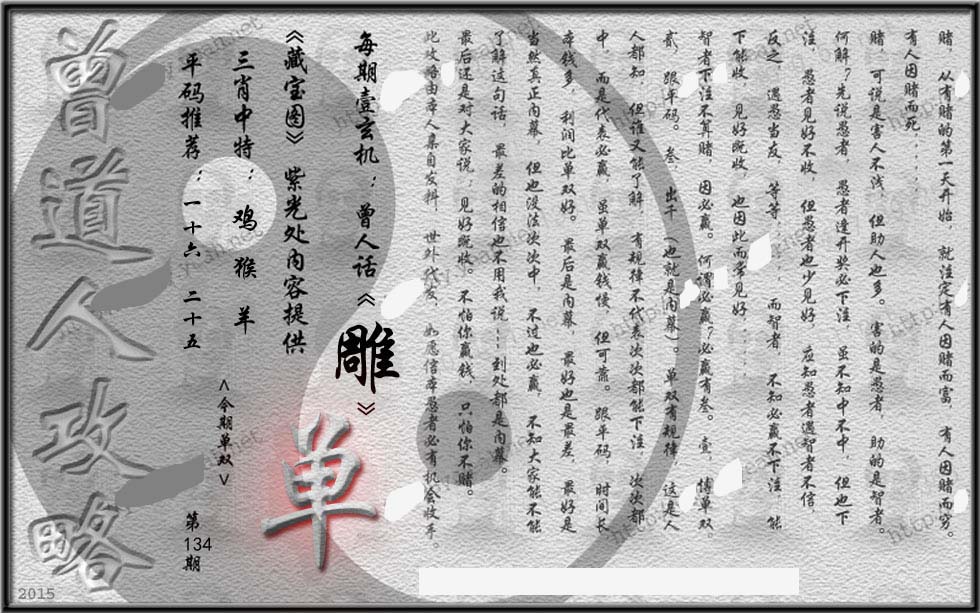 赌，从有赌的第一天开始，就注定有人因赌而富，有人因赌而穷。
有人因赌而死．．．．．
赌，可说是害人不浅，但助人也多。害的是愚者，助的是智者。
何解？先说愚者，愚者逢开奖必下注，虽不知中不中，但也下
注，愚者见好不收，但愚者也少见好，应知愚者遇智者不信，
反之，遇愚当友，等等．．．．．而智者，不知必赢不下注，能
下能收，见好既收，也因此而常见好．．．．．
智者下注不算赌，因必赢。何谓必赢？必赢有叁。壹，博单双，
贰，跟平码。叁，出千（也就是内幕）。单双有规律，这是人
人都知，但谁又能了解，有规律不代表次次都能下注，次次都
中，而是代表必赢，虽单双赢钱慢，但可靠。跟平码，时间长
本钱多，利润比单双好。最后是内幕，最好也是最差，最好是
当然真正内幕，但也没法次次中，不过也必赢，不知大家能不能
了解这句话，最差的相信也不用我说…到处都是内幕。
最后还是对大家说：见好既收。不怕你赢钱，只怕你不赌。
此攻略由本人亲自发料，世外代发，如愿信本愚者必有机会收手。
每期壹玄机：曾人话《雕》
《藏宝图》紫光处内容提供
三肖中特：鸡 猴 羊
平码推荐：一十六 二十五
<今期单双>
单
第134期
曾道人攻略
2015